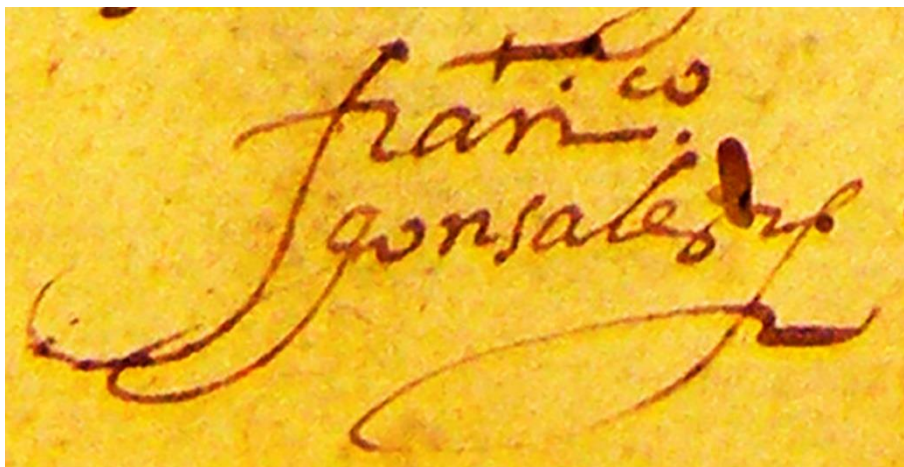 fran.co
gonsales